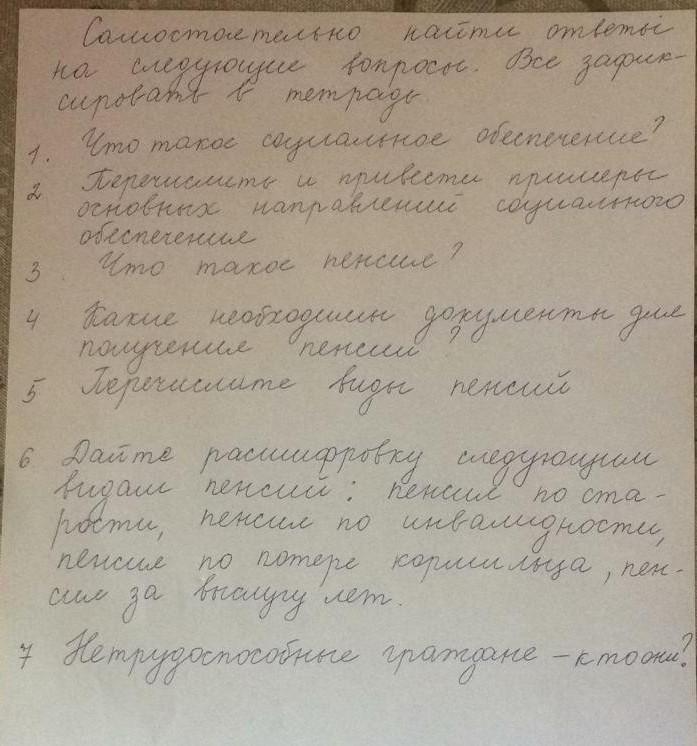 Самостоятельно найти ответы
на следующие вопросы. Все зафик-
сировать в тетрадь
1. Что такое социальное обеспечение?
2 Перечислить и привести примеры
основных направлений социального
обеспечения
3. Что такое пенсия?
4 Какие необходимы документы для
получения пенсии?
5 Перечислите виды пенсий
6 Дайте расшифровку следующим
видам пенсий: пенсия по ста-
рости, пенсия по инвалидности,
пенсия по потере кормильца, пен-
сия за выслугу лет.
7 Нетрудоспособные граждане – кто они?